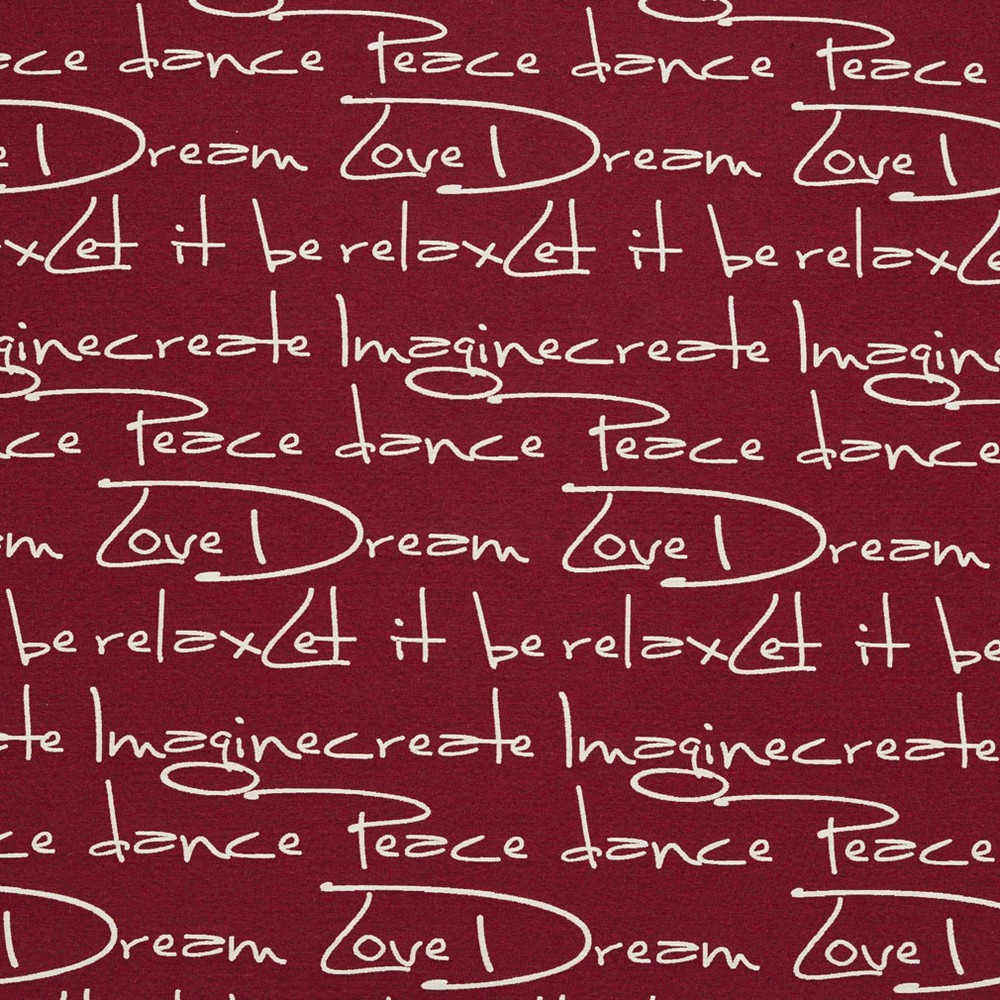 ce dance Peace dance Peace
e Dream Love Dream Love
x Let it be relax Let it be relax
gine create Imagine create Imagine
ce Peace dance Peace dance
m Love Dream Love Dream
be relax Let it be relax Let it be
te Imagine create Imagine create
ce dance Peace dance Peace
Dream Love Dream Love